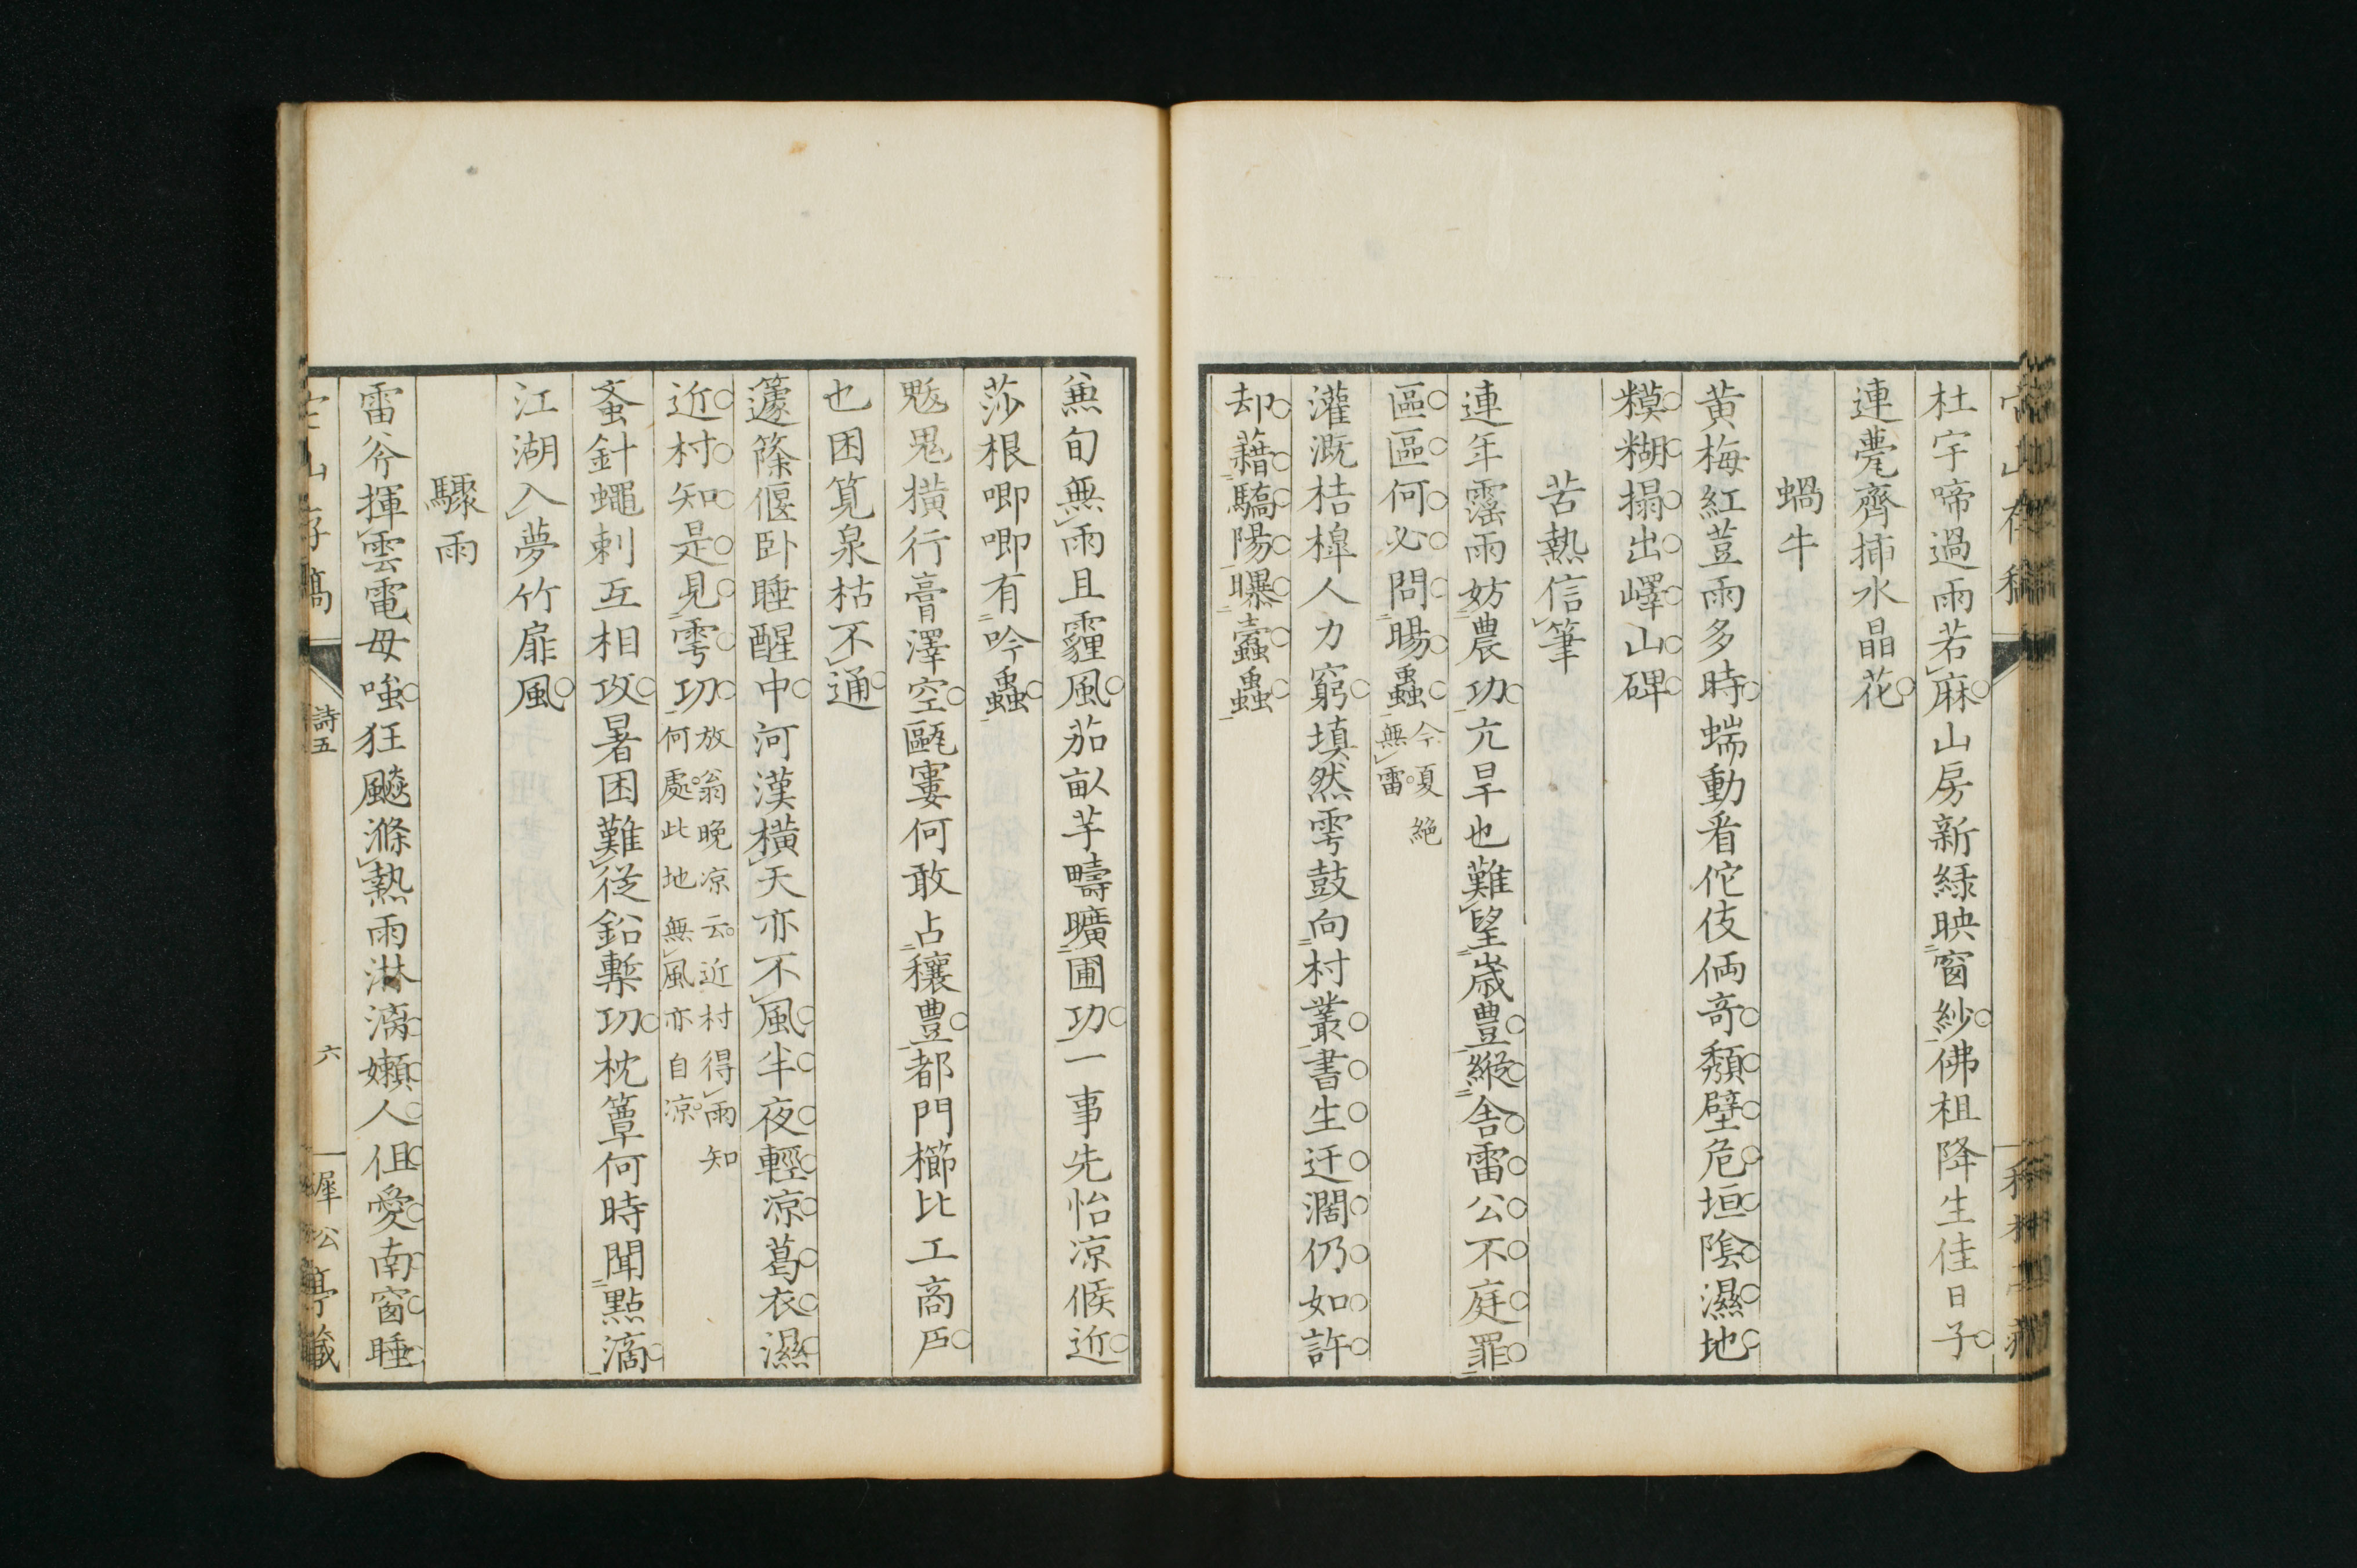 杜宇啼過雨若麻山房新緑映窗紗佛祖降生佳日子
連甍齊揷水晶花
蝸牛
黄梅紅荳雨多時蠕動看佗伎倆奇頽壁危垣陰濕地
糢糊搨出嶧山碑
苦熱信筆
連年霪雨妨農功亢旱也難望歳豊縱舎雷公不庭罪
區區何必問暘蟲今夏絶無雷
灌漑桔槹人力窮填然雩鼓向村叢書生迂濶仍如許
却藉驕陽曝蠧蟲
兼旬無雨且霾風茄畝芋疇曠圃功一事先怡凉候近
莎根唧唧有吟蟲
魃鬼横行膏澤空甌窶何敢占穰豊都門櫛比工商戸
也困筧泉枯不通
籧篨偃卧睡醒中河漢横天亦不風半夜輕凉葛衣濕
近村知是見雩功放翁晩凉云近村得雨知何處此地無風亦自凉
蚉針蠅刺互相攻暑困難從鉛槧功枕簟何時聞點滴
江湖入夢竹扉風
驟雨
雷斧揮雲電母嗤狂飈滌熱雨淋漓嬾人但愛南窗睡
詩五
六
犀公亭藏